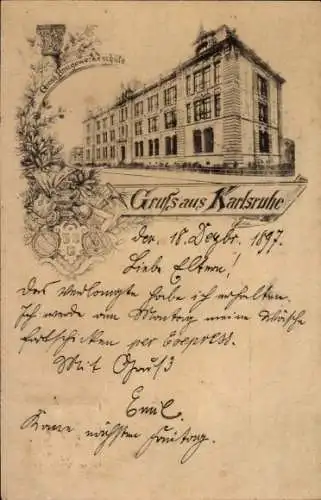 Grossh. Baugewerkschule
Gruss aus Karlsruhe
den 18. Dezbr. 1897.
Liebe Eltern!
Das verlangte habe ich erhalten.
Ich werde am Montag meine Wäsche
fortschicken per Express.
Mit Gruß
Emil.
Komme nächsten Freitag.